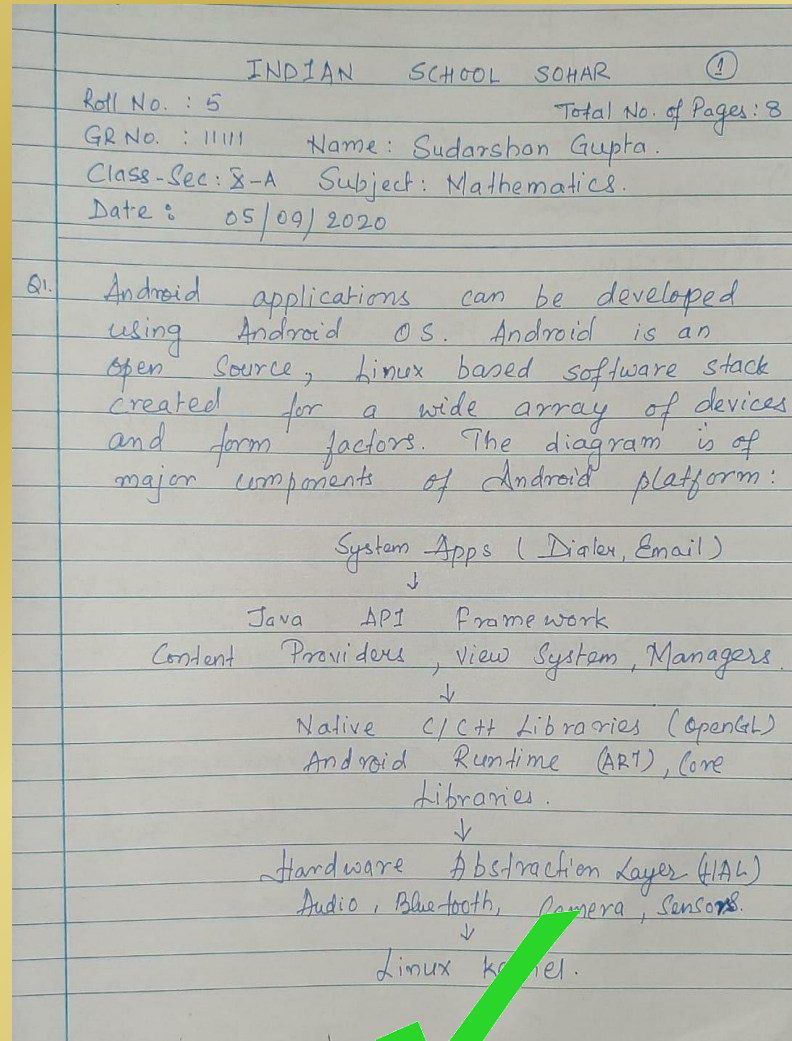 INDIAN SCHOOL SOHAR 1
Roll No. : 5 Total No. of Pages: 8
GR No. : 11111 Name: Sudarshan Gupta.
Class-Sec: X-A Subject: Mathematics.
Date: 05/09/2020
Q1. Android applications can be developed
using Android OS. Android is an
open Source, Linux based software stack
created for a wide array of devices
and form factors. The diagram is of
major components of Android platform:
System Apps ( Dialer, Email)
↓
Java API Framework
Content Providers, View System, Managers.
↓
Native C/C++ Libraries (OpenGL)
Android Runtime (ART), Core
Libraries.
↓
Hardware Abstraction Layer (HAL)
Audio, Bluetooth, Camera, Sensors.
↓
Linux Kernel.